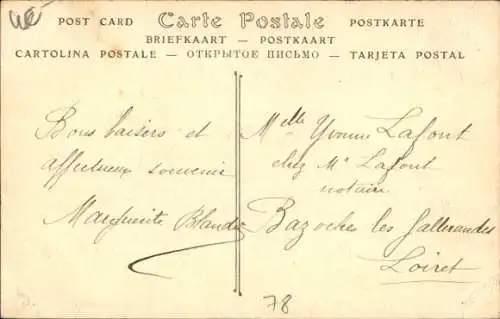 POST CARD Carte Postale POSTKARTE
BRIEFKAART — POSTKAART
CARTOLINA POSTALE — ОТКРЫТОЕ ПИСЬМО — TARJETA POSTAL
Bons baisers et
affectueux souvenir
Marguerite Blandin
Melle Yvonne Lafont
chez Mr Lafont
notaire
Bazoches les Gallerandes
Loiret
78